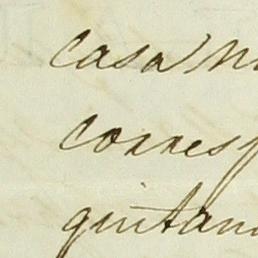 casa
corresp
quitan